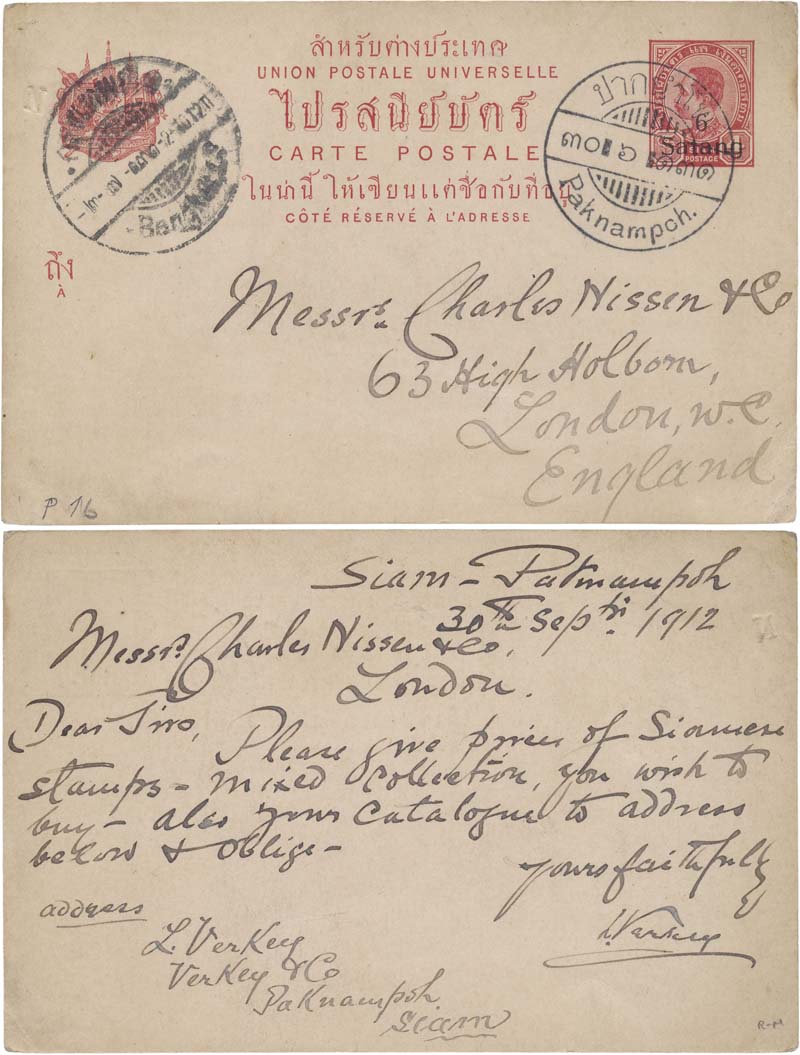 สำหรับต่างประเทศ
UNION POSTALE UNIVERSELLE
ไปรสนีย์บัตร์
CARTE POSTALE
ในน่านี้ ให้เขียนแต่ชื่อกับที่อยู่
CÔTÉ RÉSERVÉ À L'ADRESSE
6
Satang
POSTAGE
๓๐ ๖
Paknampoh.
Bangkok
ถึง
À
Messrs. Charles Nissen & Co
63 High Holborn,
London, W.C.
England
P 16
Siam - Paknampoh
30th Septbr. 1912
Messrs. Charles Nissen & Co,
London.
Dear Sirs,
Please give prices of Siamese
stamps - mixed collection, you wish to
buy - also your catalogue to address
below & oblige -
yours faithfully
L. Verkey
address
L. VerKey
VerKey & Co
PaKnampoh
Siam
R-M